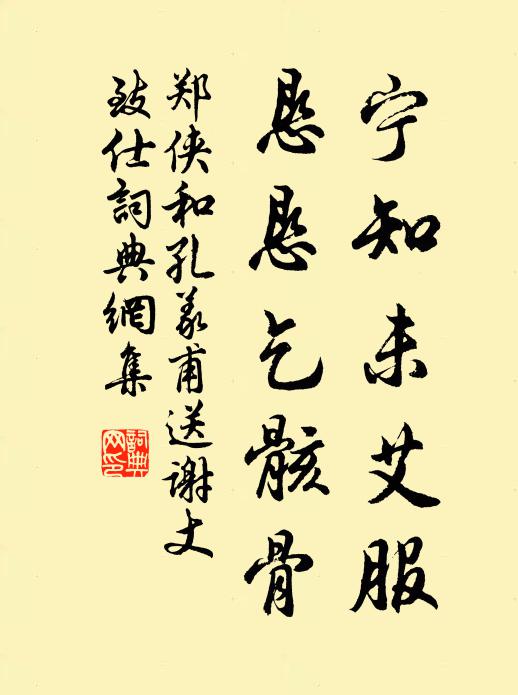 宁知未艾服
恳恳乞骸骨
郑侠和孔義甫送谢丈
致仕詞典網集
詞典
网印